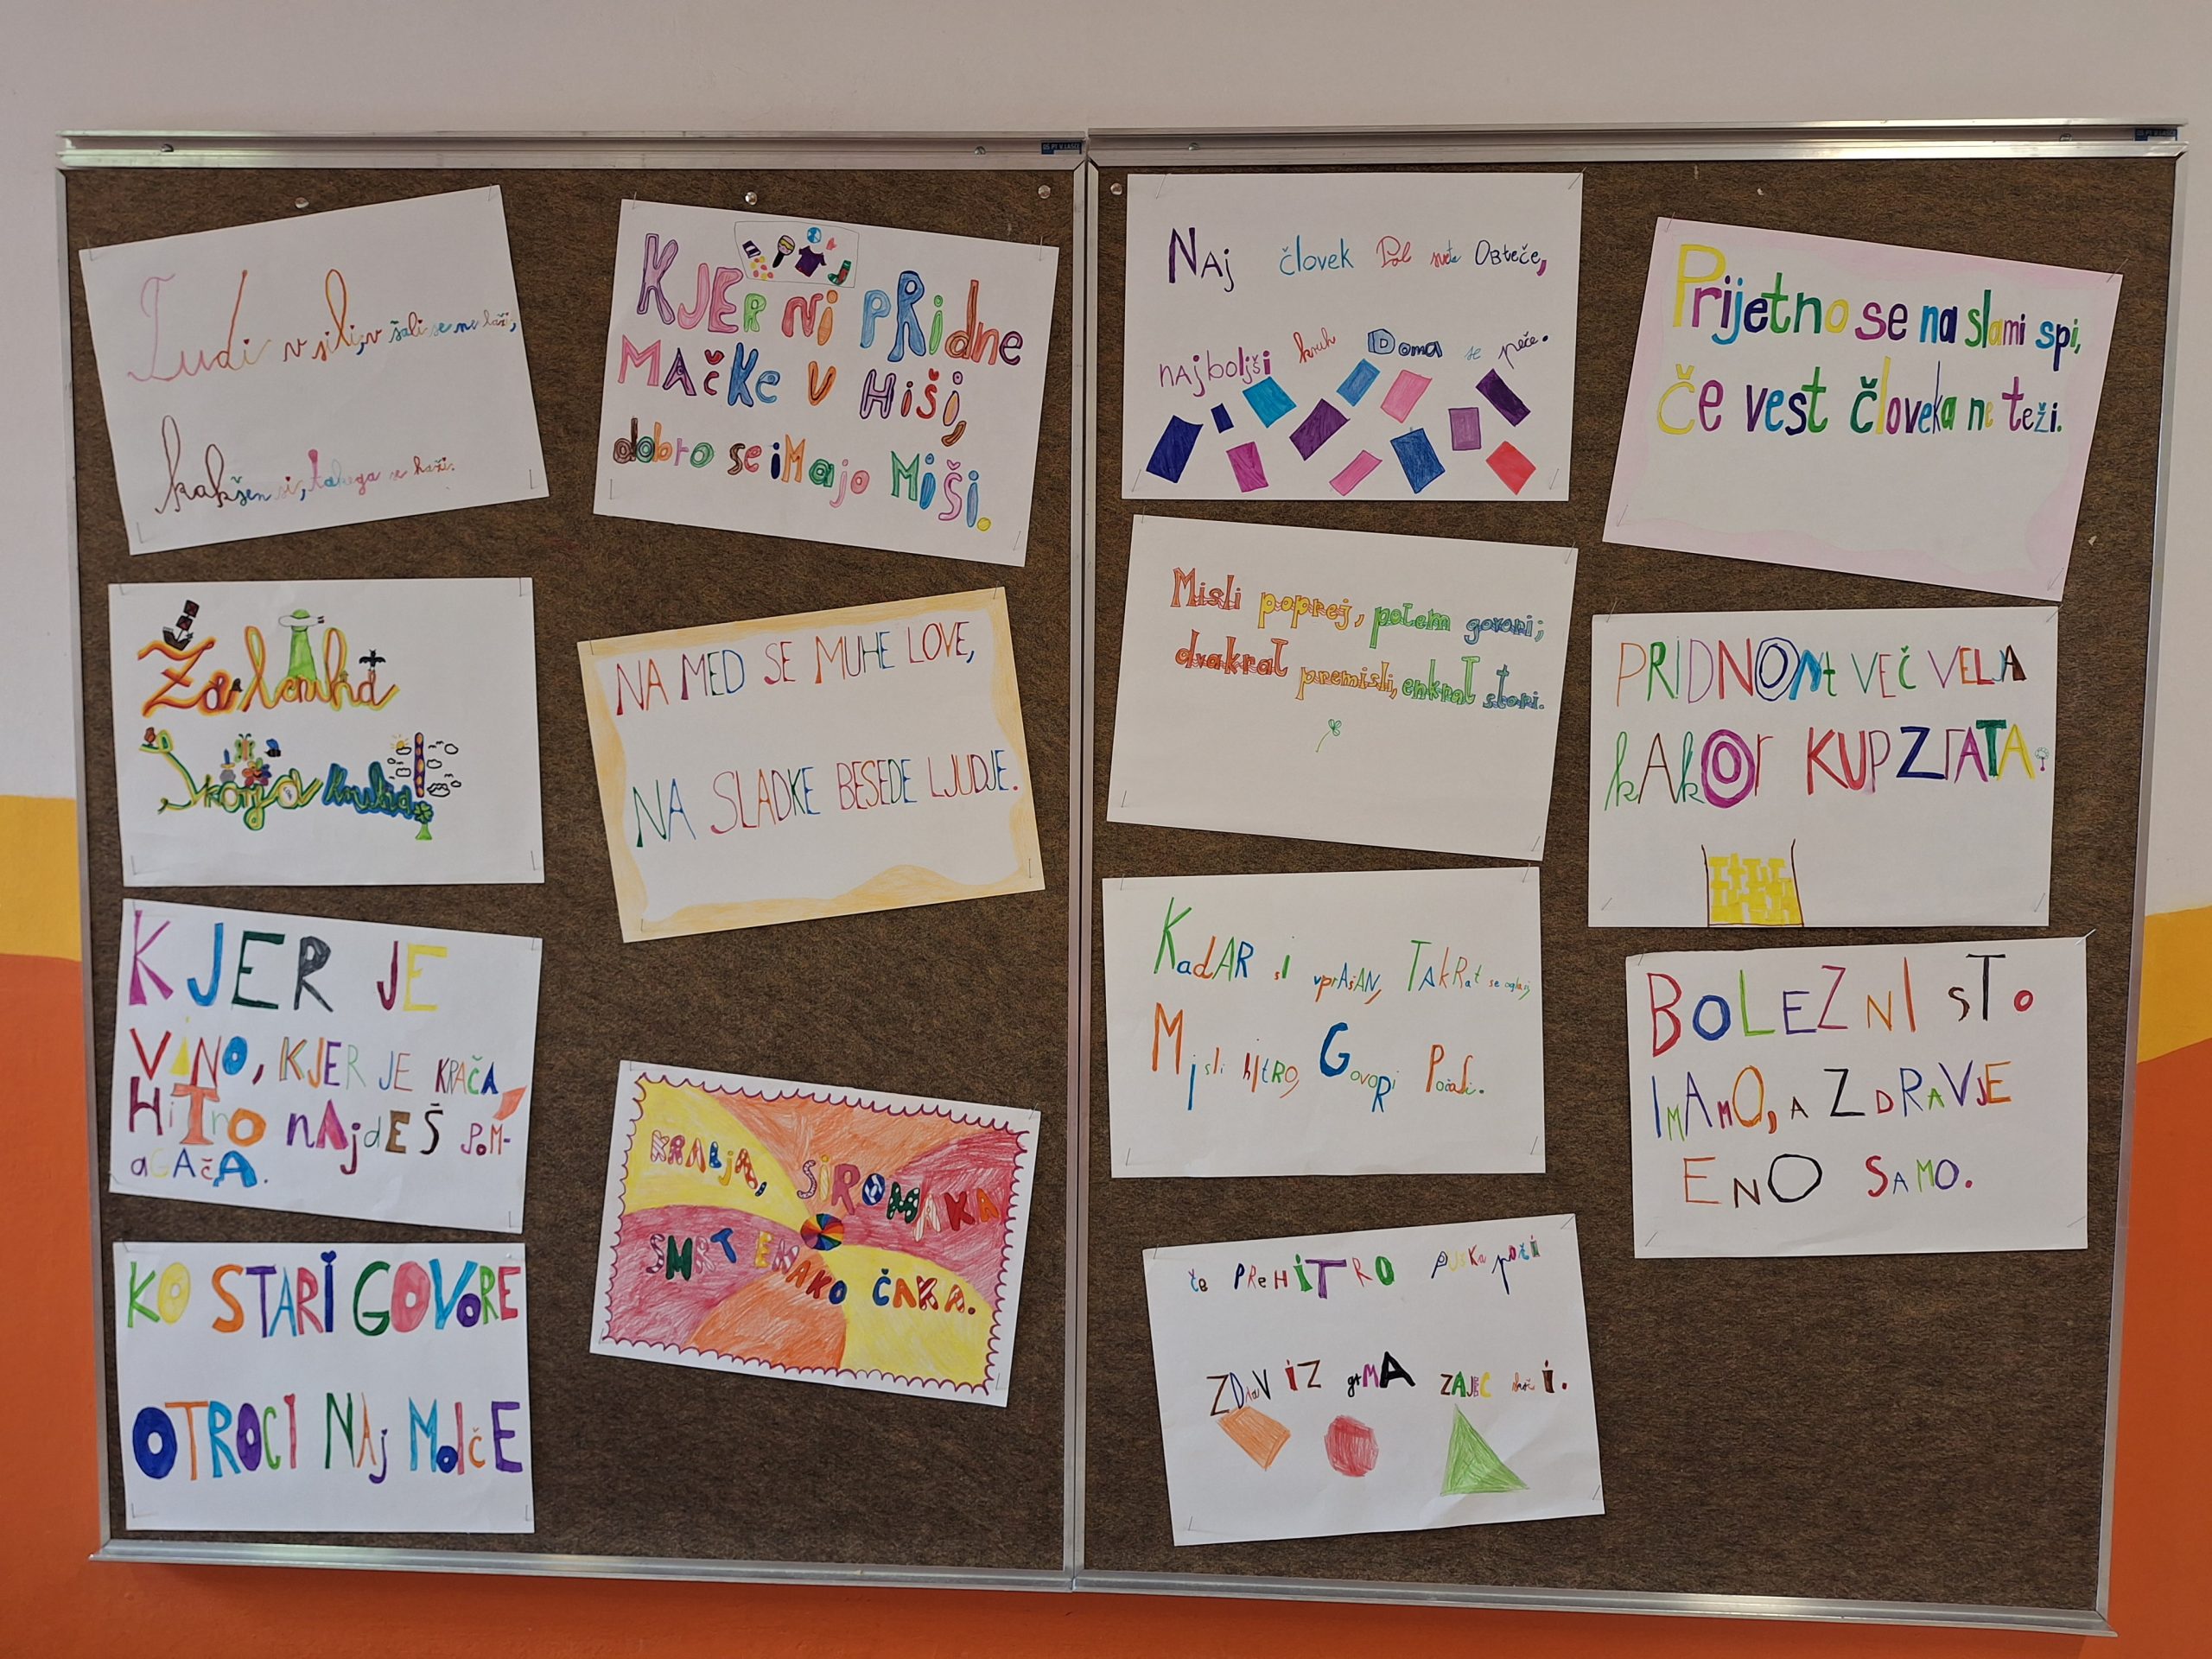 Tudi v sili, v šali se ne laži,
kakšen si, takega se kaži.
Žalenka
Skorja kruha!
KJER JE
VINO, KJER JE KRAČA
HiTrO NAjdEŠ POM-
aGAčA.
KO STARI GOVORE
OTROCI NAj MolčE
KJER Ni PRidne
MAČKe V HiŠi,
dobro se iMajo MiŠi.
NA MED SE MUHE LOVE,
NA SLADKE BESEDE LJUDJE.
KRALJA, SIROMAKA
SMRT ENAKO ČAKA.
NAj človek Pol sveta OBteče,
NAjboljši kruh Doma se peče.
Misli poprej, potem govori;
dvakrat premisli, enkrat stori.
KadAR sI vprAšAN, TAkRat se oglasi,
Misli hitRO, GovoRi Počasi.
če PReHiTRO puška poči
ZDraV iZ grMA ZAJEC skoči.
Prijetno se na slami spi,
Če vest človeka ne teži.
PRIDNONt VEČ VELJA
kAkOr KUP ZlATA.
BOLEZNI sTo
IMAMO, A ZDRAVJE
ENO SAMO.